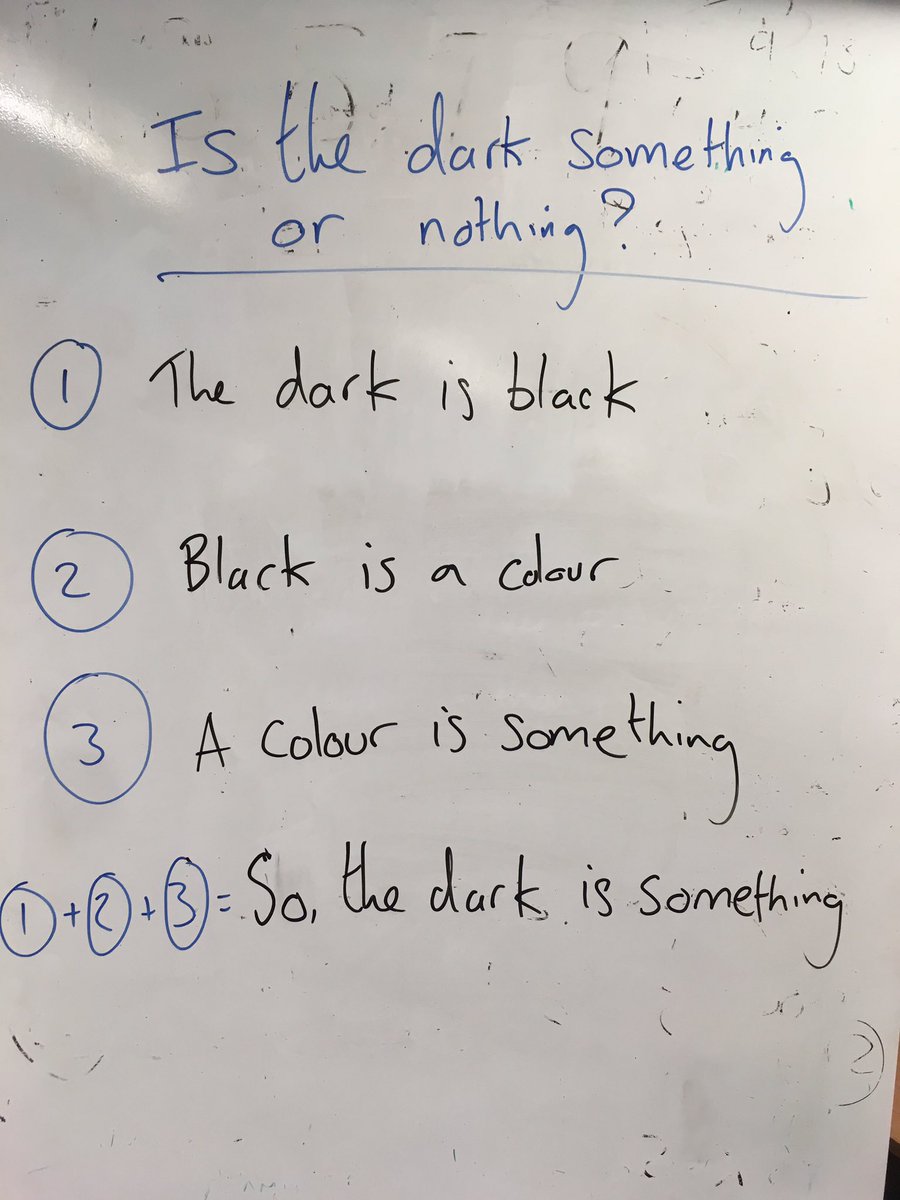 Is the dark something
or nothing?
1 The dark is black
2 Black is a colour
3 A colour is something
1 + 2 + 3 = So, the dark is something